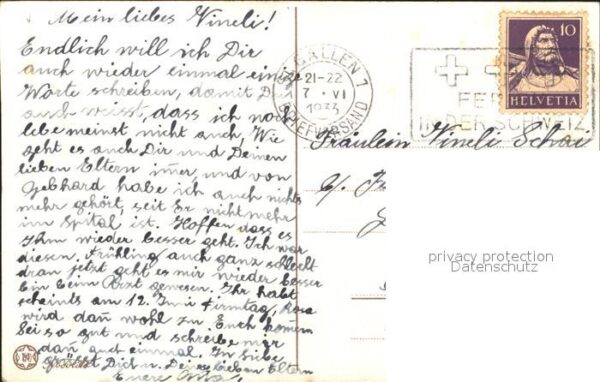 Mein liebes Vineli!
Endlich will ich Dir
auch wieder einmal einige
Worte schreiben, damit D
auch weisst, dass ich noch
lebe meinst nicht auch, Wie
geht es auch Dir und Deinen
lieben Eltern imer, und von
Gebhard habe ich auch nichts
mehr gehört, seit Er nicht mehr
im Spital ist. Hoffen dass es
Ihm wieder besser geht. Ich war
diesen Frühling auch ganz schlecht
dran jetzt geht es mir wieder besser
bin beim Arzt gewesen. Ihr habt
scheints am 12. Juni Firmtag, Rosa
wird dañ wohl zu Euch kommen
Sei so gut und schreibe mir
dañ auch einmal. In Liebe
grüsst Dich u. Deine lieben Eltern
Euere
GALLEN 1
21-22
7 VI
BRIEFVERSAND
10
HELVETIA
FER
IN DER SCHWEIZ
Fräulein Vineli Schai
privacy protection
Datenschutz